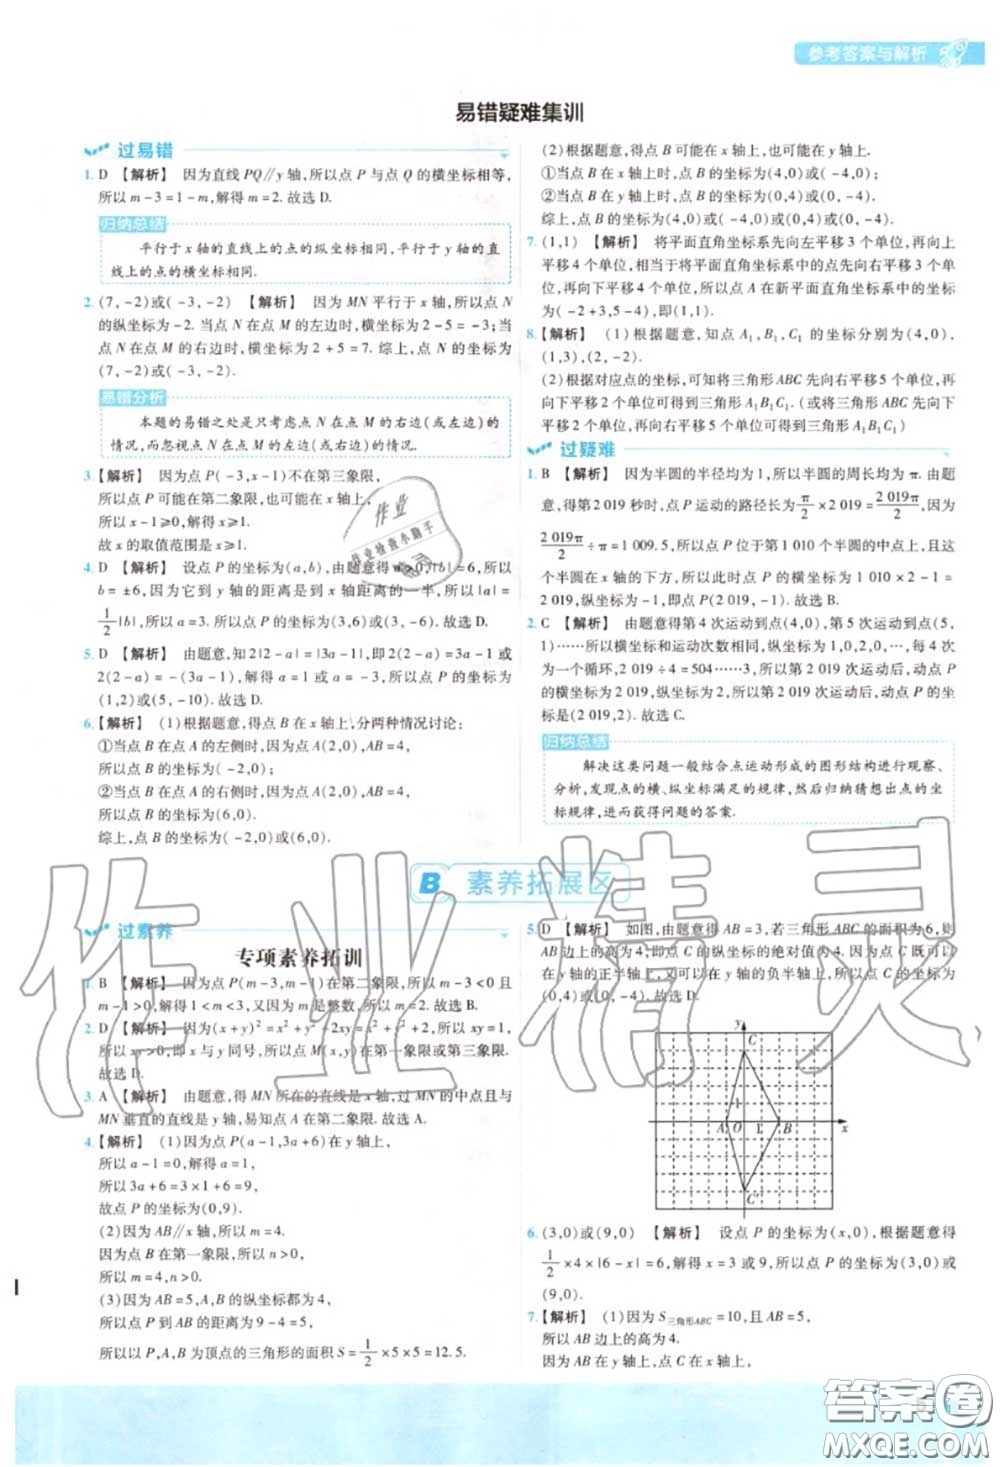 参考答案与解析
易错疑难集训
过易错
1. D 【解析】 因为直线 PQ∥y 轴,所以点 P 与点 Q 的横坐标相等,
所以 m-3=1-m,解得 m=2. 故选 D.
归纳总结
平行于 x 轴的直线上的点的纵坐标相同,平行于 y 轴的直
线上的点的横坐标相同.
2. (7,-2)或(-3,-2) 【解析】 因为 MN 平行于 x 轴,所以点 N
的纵坐标为-2. 当点 N 在点 M 的左边时,横坐标为 2-5=-3;当
点 N 在点 M 的右边时,横坐标为 2+5=7. 综上,点 N 的坐标为
(7,-2)或(-3,-2).
易错分析
本题的易错之处是只考虑点 N 在点 M 的右边(或左边)的
情况,而忽视点 N 在点 M 的左边(或右边)的情况.
3. 【解析】 因为点 P(-3,x-1)不在第三象限,
所以点 P 可能在第二象限,也可能在 x 轴上,
所以 x-1≥0,解得 x≥1.
故 x 的取值范围是 x≥1.
4. D 【解析】 设点 P 的坐标为(a,b),由题意得 a>0,|b|=6,所以
b=±6,因为它到 y 轴的距离是到 x 轴距离的一半,所以|a|=
1/2|b|,所以 a=3. 所以点 P 的坐标为(3,6)或(3,-6). 故选 D.
5. D 【解析】 由题意,知 2|2-a|=|3a-1|,即 2(2-a)=3a-1 或
2(2-a)=-(3a-1),解得 a=1 或 a=-3,所以点 P 的坐标为
(1,2)或(5,-10). 故选 D.
6. 【解析】 (1)根据题意,得点 B 在 x 轴上,分两种情况讨论:
①当点 B 在点 A 的左侧时,因为点 A(2,0),AB=4,
所以点 B 的坐标为(-2,0);
②当点 B 在点 A 的右侧时,因为点 A(2,0),AB=4,
所以点 B 的坐标为(6,0).
综上,点 B 的坐标为(-2,0)或(6,0).
(2)根据题意,得点 B 可能在 x 轴上,也可能在 y 轴上.
①当点 B 在 x 轴上时,点 B 的坐标为(4,0)或(-4,0);
②当点 B 在 y 轴上时,点 B 的坐标为(0,4)或(0,-4).
综上,点 B 的坐标为(4,0)或(-4,0)或(0,4)或(0,-4).
7. (1,1) 【解析】 将平面直角坐标系先向左平移 3 个单位,再向上
平移 4 个单位,相当于将平面直角坐标系中的点先向右平移 3 个
单位,再向下平移 4 个单位,所以点 A 在新平面直角坐标系中的坐标
为(-2+3,5-4),即(1,1).
8. 【解析】 (1)根据题意,知点 A1,B1,C1 的坐标分别为(4,0),
(1,3),(2,-2).
(2)根据对应点的坐标,可知将三角形 ABC 先向右平移 5 个单
位,再向下平移 2 个单位可得到三角形 A1B1C1. (或将三角形 ABC 先向下
平移 2 个单位,再向右平移 5 个单位可得到三角形 A1B1C1)
过疑难
1. B 【解析】 因为半圆的半径均为 1,所以半圆的周长均为 π. 由题
意,得第 2 019 秒时,点 P 运动的路径长为π/2×2 019=2 019π/2,因为
2 019π/2÷π=1 009.5,所以点 P 位于第 1 010 个半圆的中点上,且这
个半圆在 x 轴的下方,所以此时点 P 的横坐标为 1 010×2-1=
2 019,纵坐标为-1,即点 P(2 019,-1). 故选 B.
2. C 【解析】 由题意得第 4 次运动到点(4,0),第 5 次运动到点(5,
1)……所以横坐标和运动次数相同,纵坐标为 1,0,2,0,每 4 次
为一个循环,2 019÷4=504……3,所以第 2 019 次运动后,动点 P
的横坐标为 2 019,纵坐标为 2,所以第 2 019 次运动后,动点 P 的坐
标是(2 019,2). 故选 C.
归纳总结
解决这类问题一般结合点运动形成的图形结构进行观察、
分析,发现点的横、纵坐标满足的规律,然后归纳猜想出点的坐
标规律,进而获得问题的答案.
B 素养拓展区
过素养
专项素养拓训
1. B 【解析】 因为点 P(m-3,m-1)在第二象限,所以 m-3<0 且
m-1>0,解得 1<m<3,又因为 m 是整数,所以 m=2. 故选 B.
2. D 【解析】 因为(x+y)²=x²+y²+2xy=x²+y²+2,所以 xy=1,
所以 xy>0,即 x 与 y 同号,所以点 M(x,y)在第一象限或第三象限.
故选 D.
3. A 【解析】 由题意,得 MN 所在的直线是 x 轴,过 MN 的中点且与
MN 垂直的直线是 y 轴,易知点 A 在第二象限. 故选 A.
4. 【解析】 (1)因为点 P(a-1,3a+6)在 y 轴上,
所以 a-1=0,解得 a=1,
所以 3a+6=3×1+6=9,
故点 P 的坐标为(0,9).
(2)因为 AB∥x 轴,所以 m=4.
因为点 B 在第一象限,所以 n>0,
所以 m=4,n>0.
(3)因为 AB=5,A,B 的纵坐标都为 4,
所以点 P 到 AB 的距离为 9-4=5,
所以以 P,A,B 为顶点的三角形的面积 S=1/2×5×5=12.5.
5. D 【解析】 如图,由题意得 AB=3,若三角形 ABC 的面积为 6,则
AB 边上的高为 4,即点 C 的纵坐标的绝对值为 4. 因为点 C 既可以
在 y 轴的正半轴上,又可以在 y 轴的负半轴上,所以点 C 的坐标为
(0,4)或(0,-4). 故选 D.
y
C
1
A O 1 B x
C'
6. (3,0)或(9,0) 【解析】 设点 P 的坐标为(x,0),根据题意得
1/2×4×|6-x|=6,解得 x=3 或 x=9,所以点 P 的坐标为(3,0)或
(9,0).
7. 【解析】 (1)因为 S三角形ABC=10,且 AB=5,
所以 AB 边上的高为 4.
因为 AB 在 x 轴上,点 C 在 y 轴上,
作业
作业检查小助手
作业精灵
答案卷
MXQE.COM